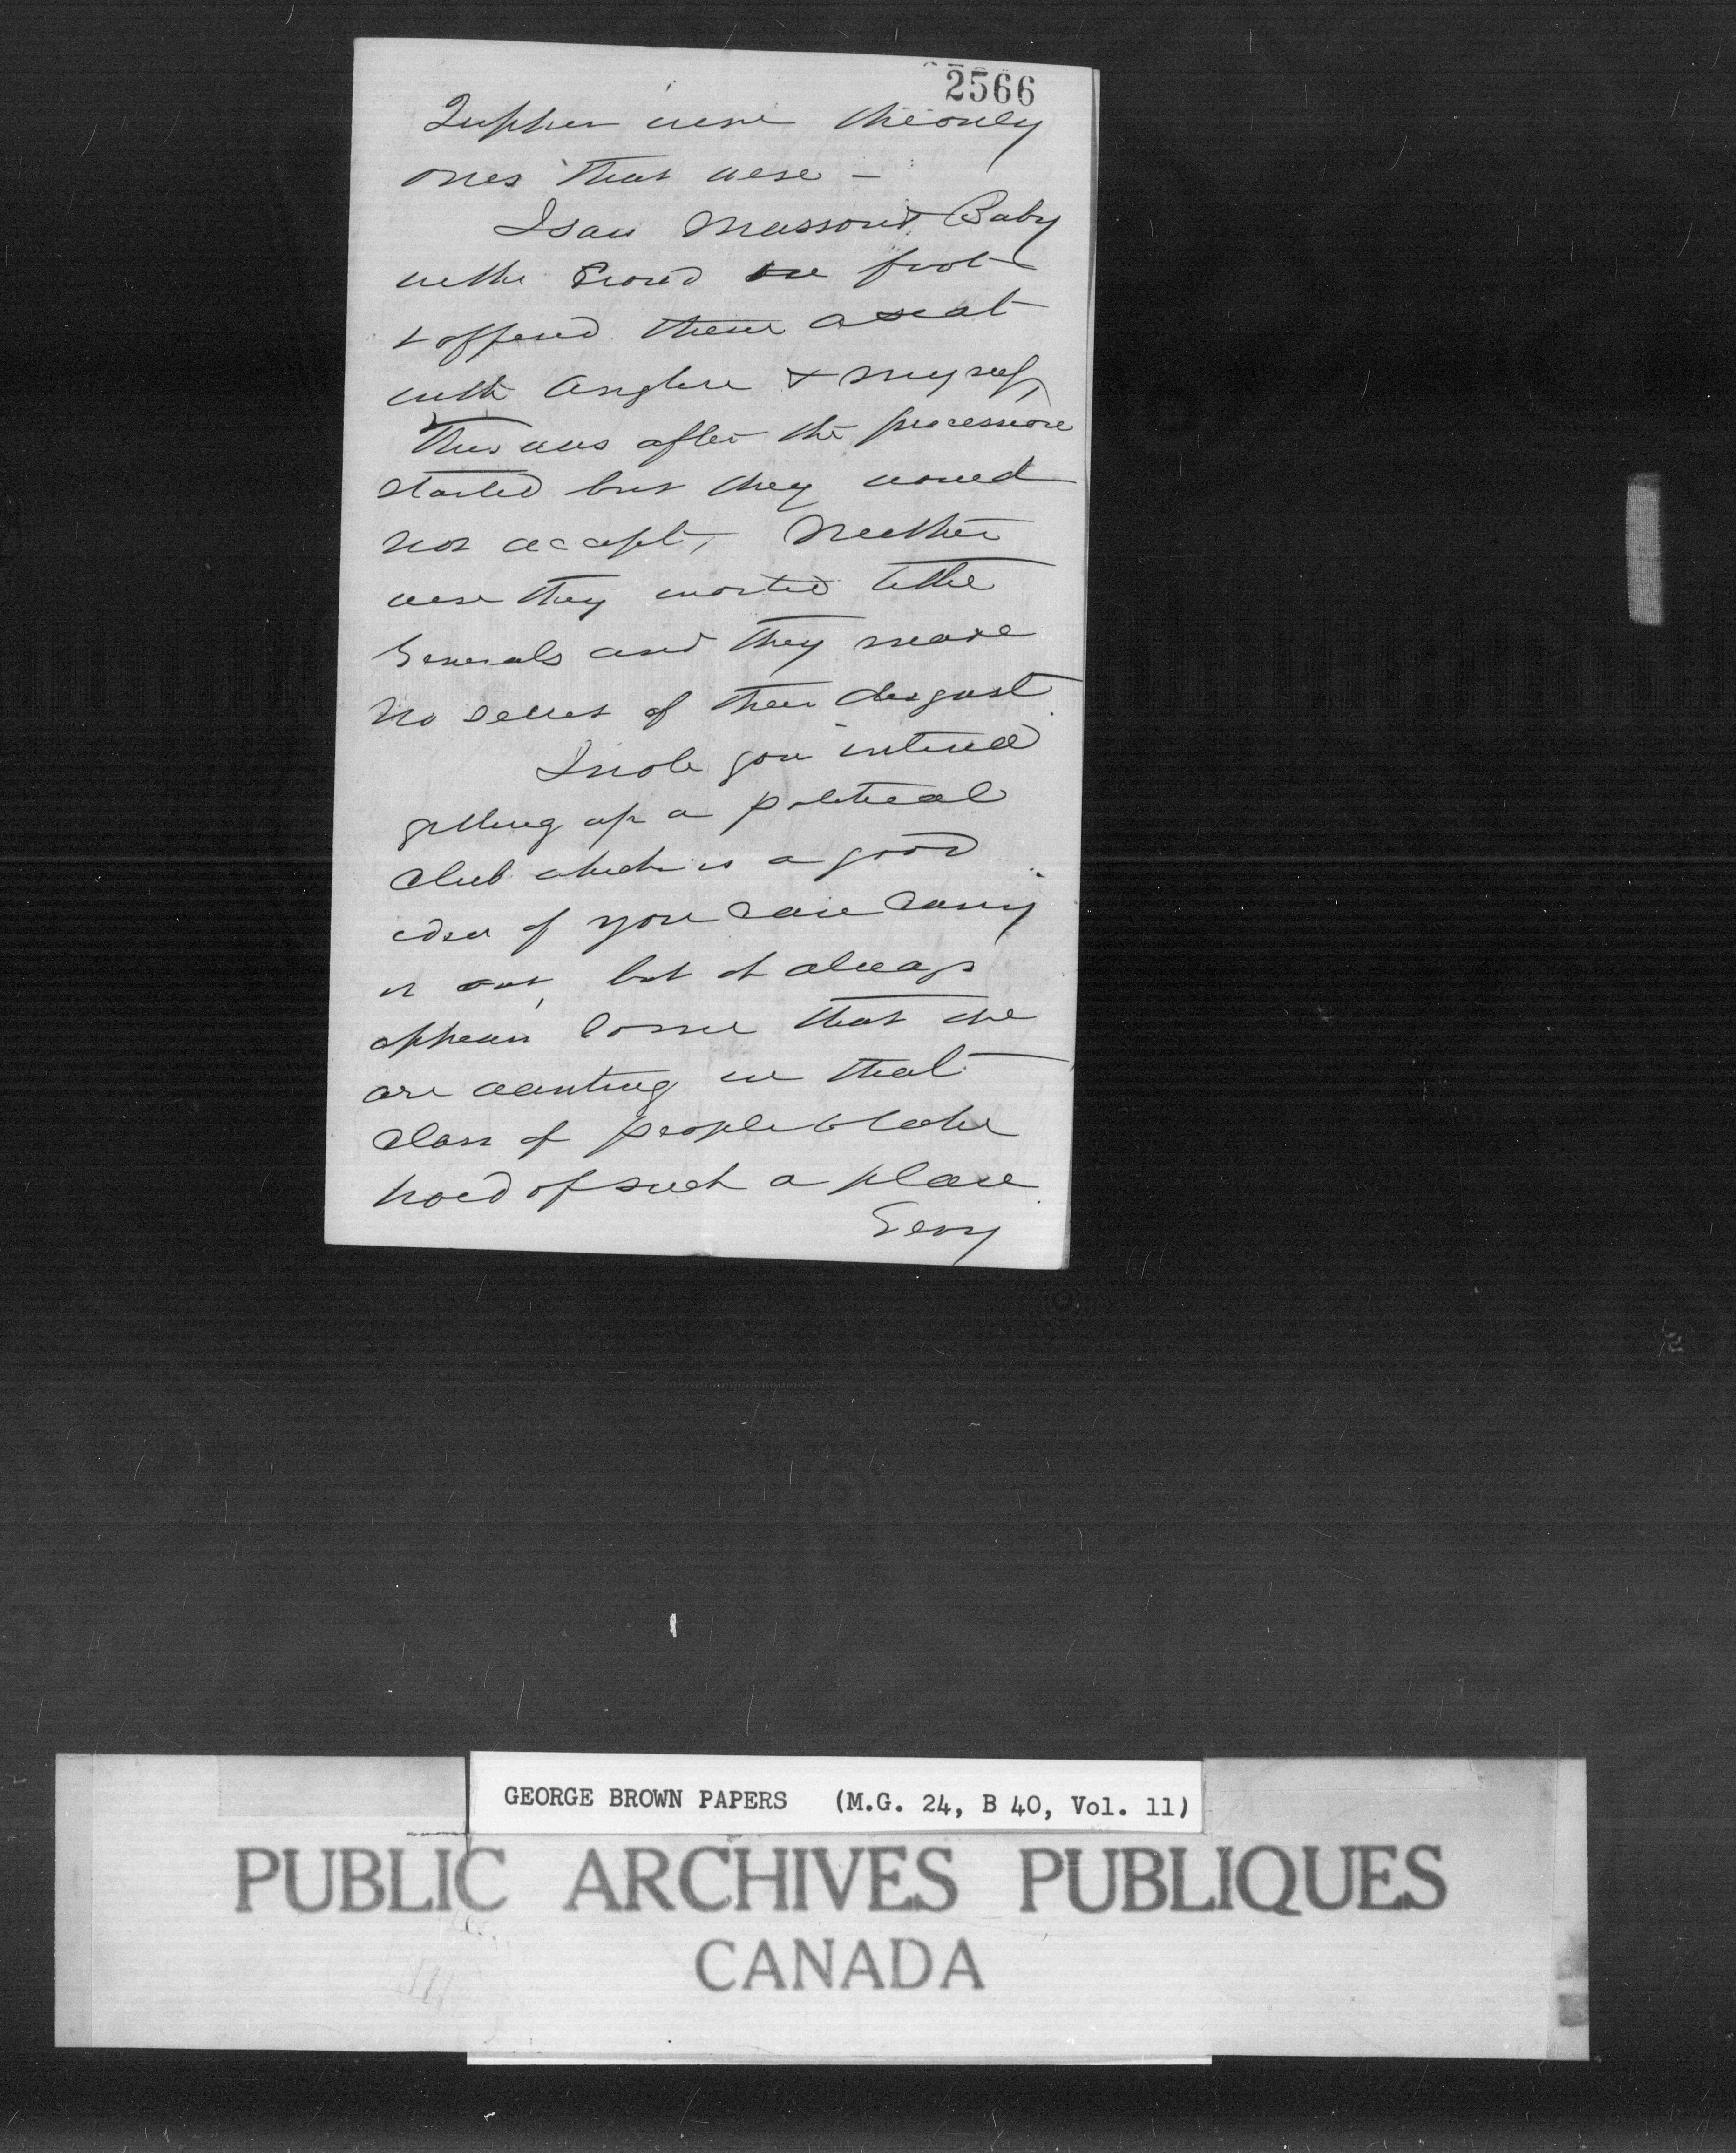 2566
Tupper were the only
ones that were -
I saw Masson & Baby
in the Crowd on foot
& offered them a seat
with Anglin & myself,
This was after the procession
started but they would
not accept, Neither
were they invited to the
Generals and they made
no secret of their disgust
I note you intend
getting up a political
Club which is a good
idea if you can Carry
it out, but it always
appears to me that we
are wanting in that
Class of people to take
hold of such a place
Geoy
GEORGE BROWN PAPERS (M.G. 24, B 40, Vol. 11)
PUBLIC ARCHIVES PUBLIQUES
CANADA